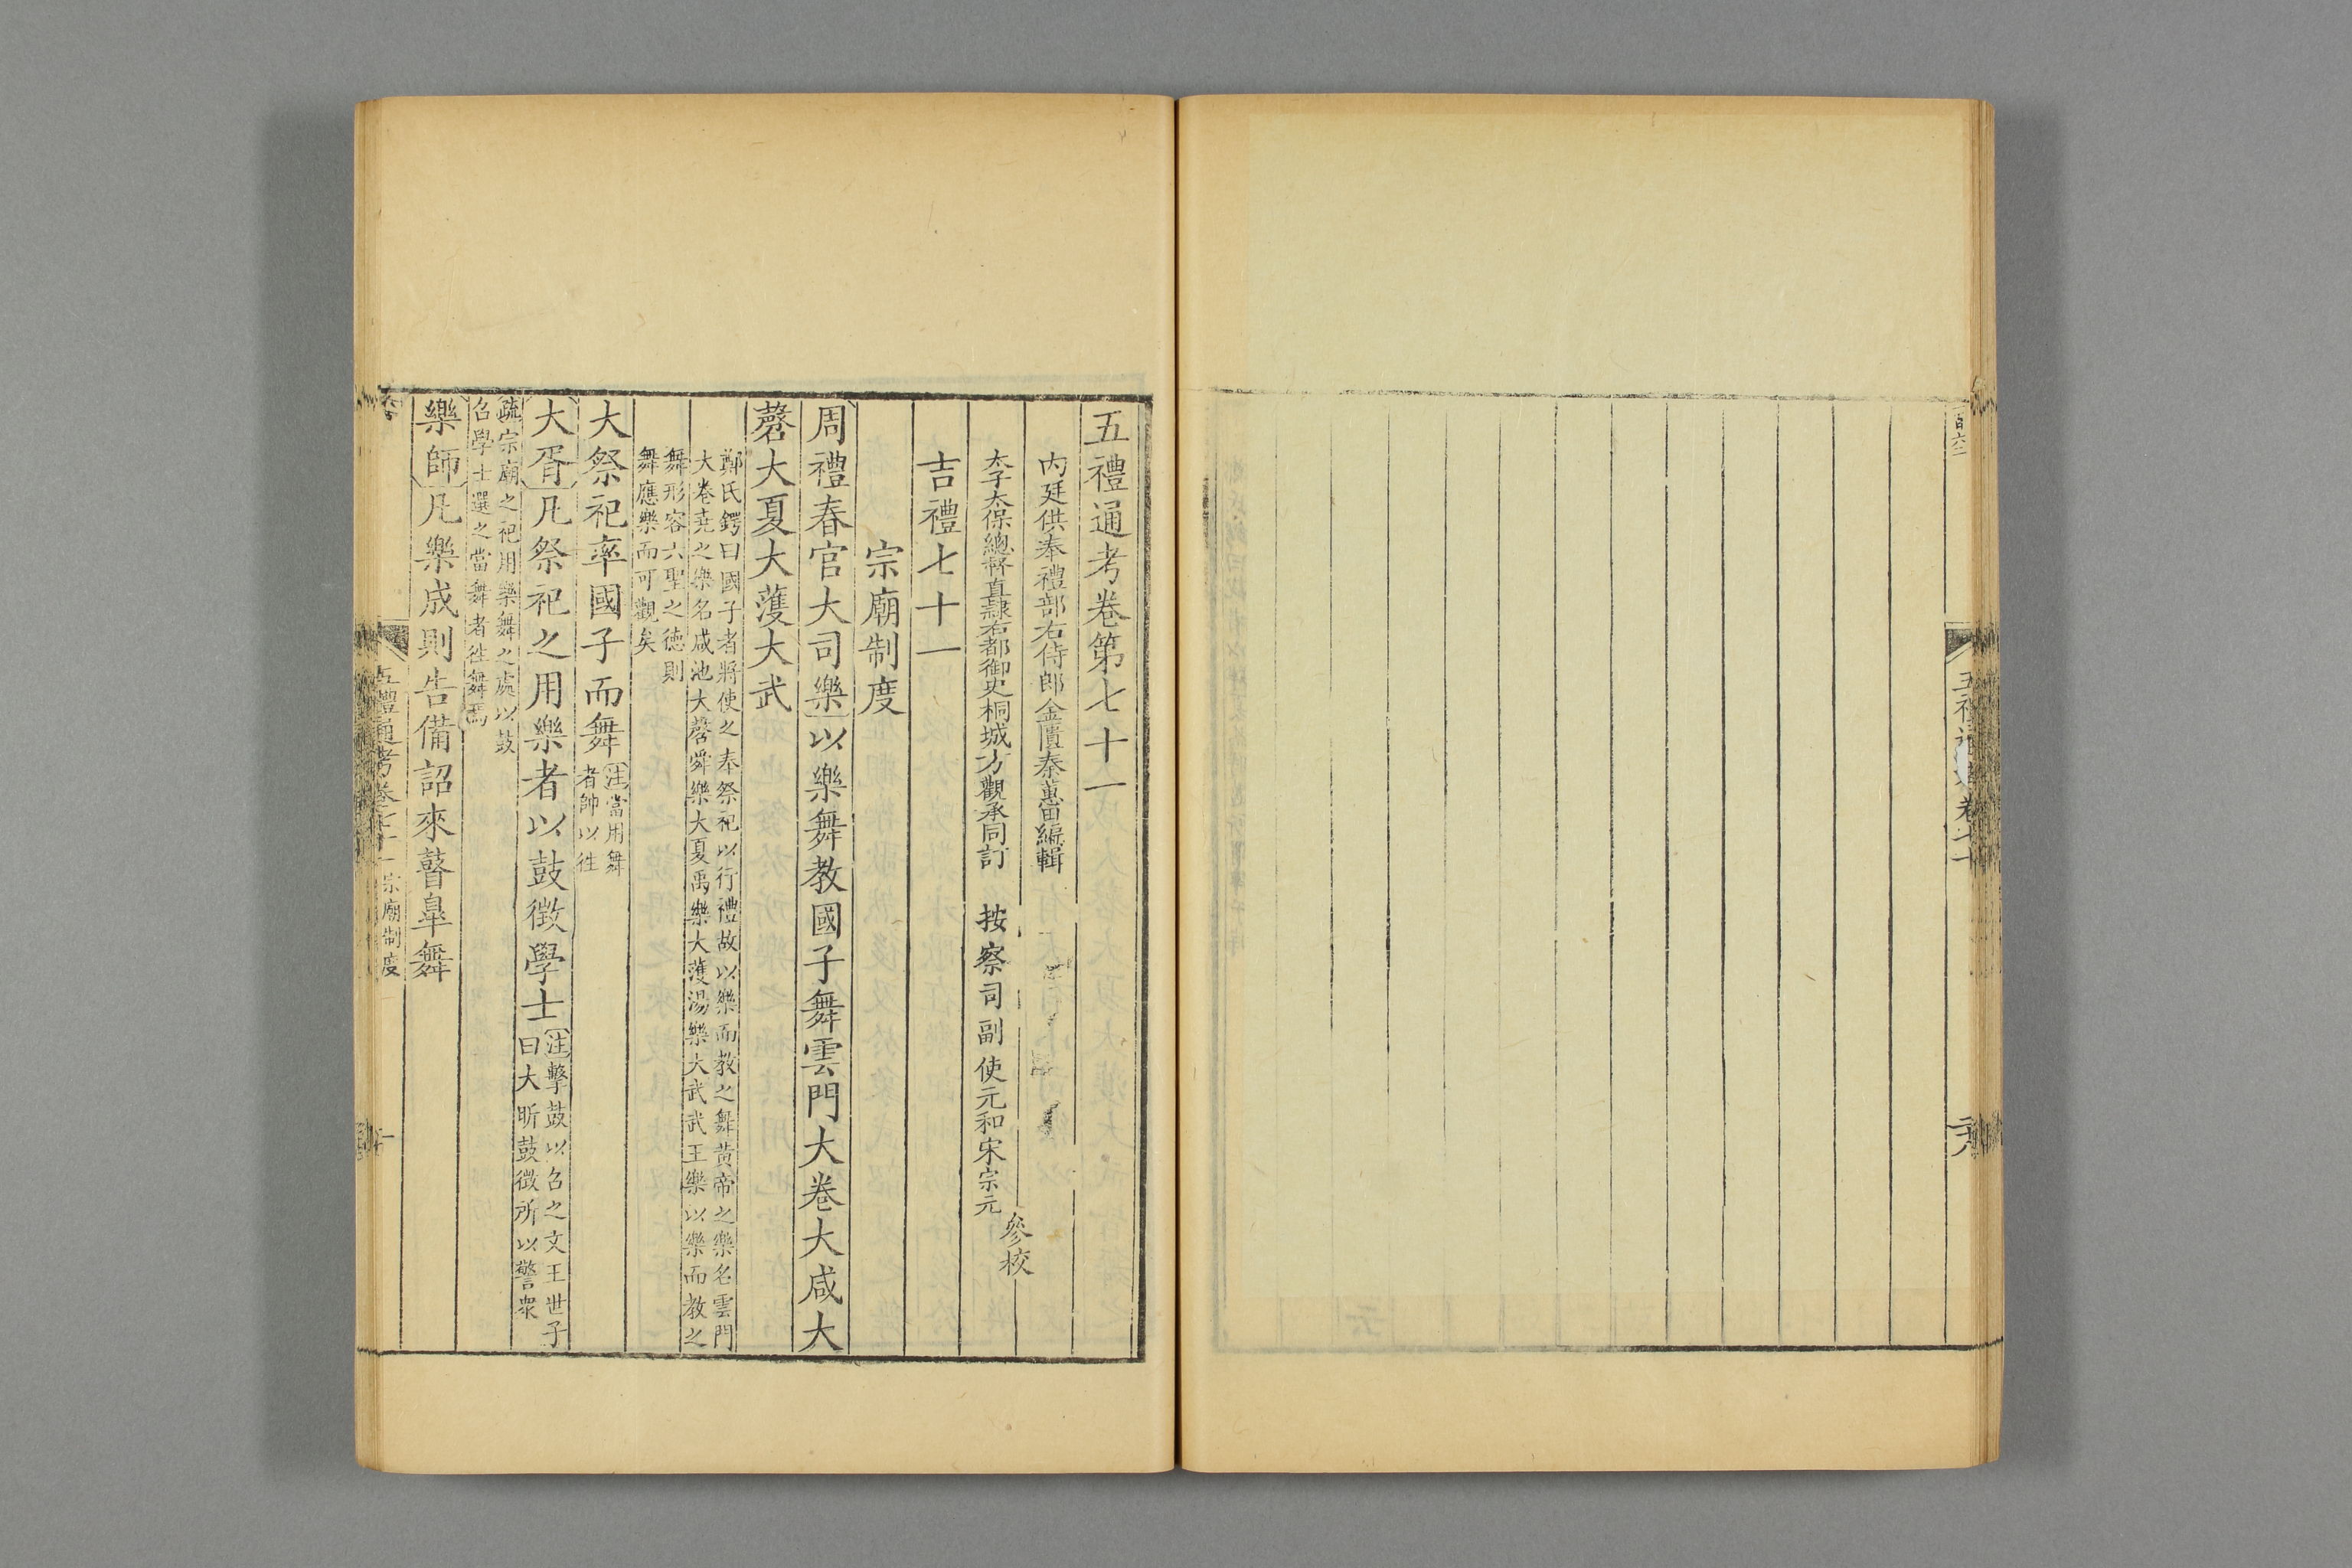 五禮通考卷第七十一
內廷供奉禮部右侍郎金匱秦蕙田編輯
太子太保總督直隷右都御史桐城方觀承同訂
按察司副使元和宋宗元
參校
吉禮七十一
宗廟制度
周禮春官大司樂以樂舞教國子舞雲門大卷大咸大
磬大夏大濩大武
鄭氏鍔曰國子者將使之奉祭祀以行禮故以樂而教之舞黃帝之樂名雲門
大卷堯之樂名咸池大磬舜樂大夏禹樂大濩湯樂大武武王樂以樂而教之
舞形容六聖之德則
舞應樂而可觀矣
大祭祀率國子而舞
注當用舞
者帥以往
大胥凡祭祀之用樂者以鼓徵學士
注擊鼓以召之文王世子
曰大昕鼓徵所以警衆
疏宗廟之祀用樂舞之處以鼓
召學士選之當舞者往舞焉
樂師凡樂成則告備詔來瞽皐舞
五禮通考卷七十一宗廟制度
一
卷七十